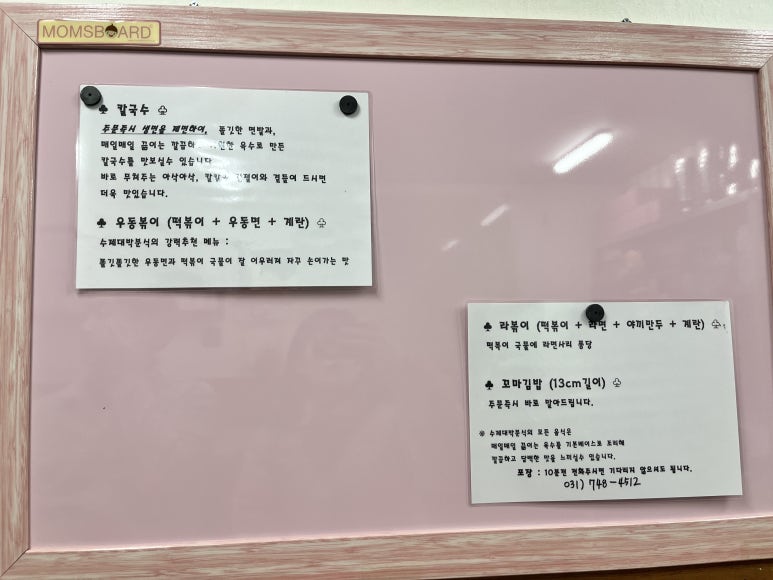 MOMSBOARD
♣ 칼국수 ♧
주문즉시 생면을 제면하여, 쫄깃한 면발과,
매일매일 끓이는 깔끔하 원한 육수로 만든
칼국수를 맛보실수 있습니다
바로 무쳐주는 아삭아삭, 칼칼한 겉절이와 곁들여 드시면
더욱 맛있습니다.
♣ 우동볶이 (떡볶이 + 우동면 + 계란) ♧
수제대박분식의 강력추천 메뉴 :
쫄깃쫄깃한 우동면과 떡볶이 국물이 잘 어우러져 자꾸 손이가는 맛
♣ 라볶이 (떡볶이 + 라면 + 야끼만두 + 계란) ♧
떡볶이 국물에 라면사리 퐁당
♣ 꼬마김밥 (13cm길이) ♧
주문즉시 바로 말아드립니다.
※ 수제대박분식의 모든 음식은
매일매일 끓이는 육수를 기본베이스로 조리해
깔끔하고 담백한 맛을 느끼실수 있습니다.
포장 : 10분전 전화주시면 기다리지 않으셔도 됩니다.
031) 748-4512